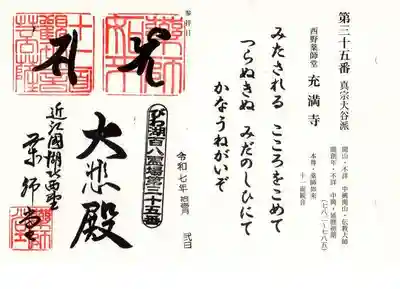 第三十五番 真宗大谷派
西野薬師堂 充満寺
開山・不詳 中興開山・伝教大師
開創年・不詳 中興・延暦初期
(七八二~七八五)
本尊・薬師如来
十一面観音
みたされる こころをこめて
つらぬきぬ みだのしひにて
かなうねがいぞ
参拝日
令和七年 拾壱月 弐日
びわ湖百八霊場第三十五番
大悲殿
近江國湖北西野
薬師堂